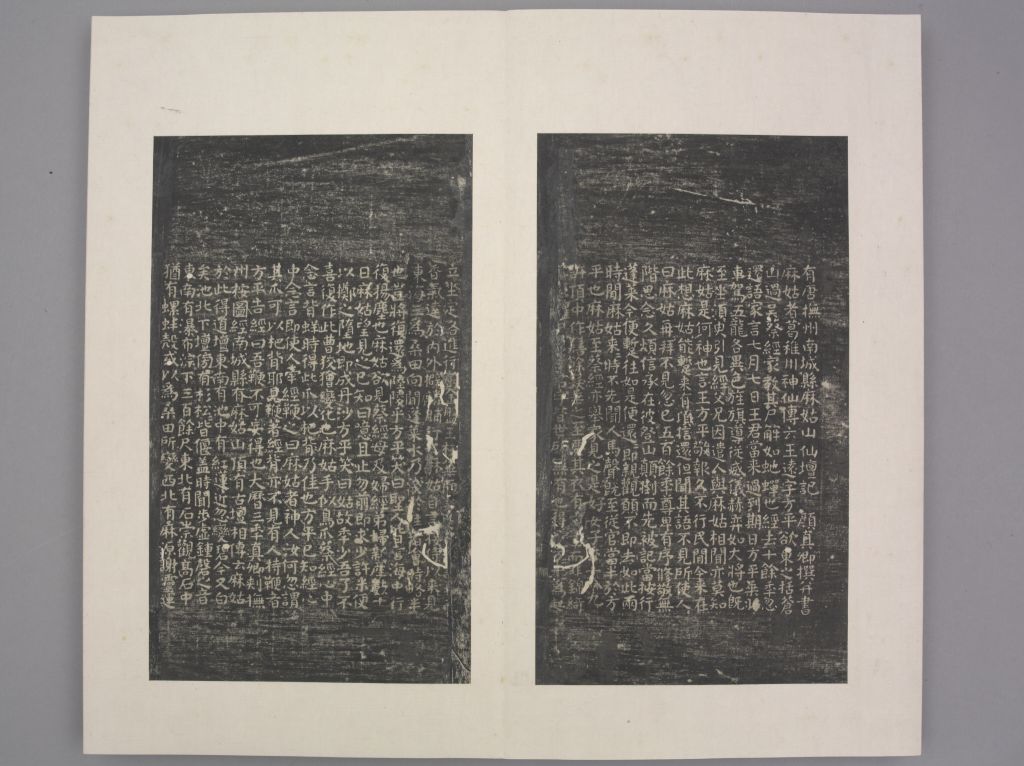 有唐撫州南城縣麻姑山仙壇記 顏真卿撰并書
麻姑者葛稚川神仙傳云王遠字方平欲東之括蒼
山過吳蔡經家教其尸解如蛇蟬也經去十餘年忽
還語家言七月七日王君當來過到期日方平乘羽
車駕五龍各異色旌旗導從威儀赫弈如大將也既
至坐須臾引見經父兄因遣人與麻姑相聞亦莫知
麻姑是何神也言王方平敬報久不行民間今來在
此想麻姑能暫來有頃信還但聞其語不見所使人
曰麻姑再拜不見忽已五百餘年尊卑有序修敬無
階思念久煩信承在彼登山顛倒而先被記當按行
蓬萊今便暫往如是便還還即親觀願不即去如此兩
時間麻姑來時不先聞人馬聲既至從官當半於方
平也麻姑至蔡經亦舉家見之是好女子年十八九
許頂中作髻餘髮垂之至要其衣有
立坐定各進行廚
香氣達於內外
東海三為桑田向間蓬萊水乃淺於
也豈將復還為陸陵乎方平笑曰聖人皆言海中行
復揚塵也麻姑欲見蔡經母及婦經弟婦新產數十
日麻姑望見之已知曰噫且止勿前即求少許米便
以擲之墮地即成丹沙方平笑曰姑故年少吾了不
喜復作此曹狡獪變化也麻姑手似鳥爪蔡經心中
念言背蛘時得此爪以杷背乃佳也方平已知經心
中念言即使人牽經鞭之曰麻姑者神人汝何忽謂
其爪可以杷背耶見鞭著經背亦不見有人持鞭者
方平告經曰吾鞭不可妄得也大曆三年真卿刺撫
州按圖經南城縣有麻姑山頂有古壇相傳云麻姑
於此得道壇東南有池中有紅蓮近忽變碧今又白
矣池北下壇傍有杉松皆偃蓋時聞步虛鍾磬之音
東南有瀑布淙下三百餘尺東北有石崇觀高石中
猶有螺蚌殼或以為桑田所變西北有麻源謝靈運